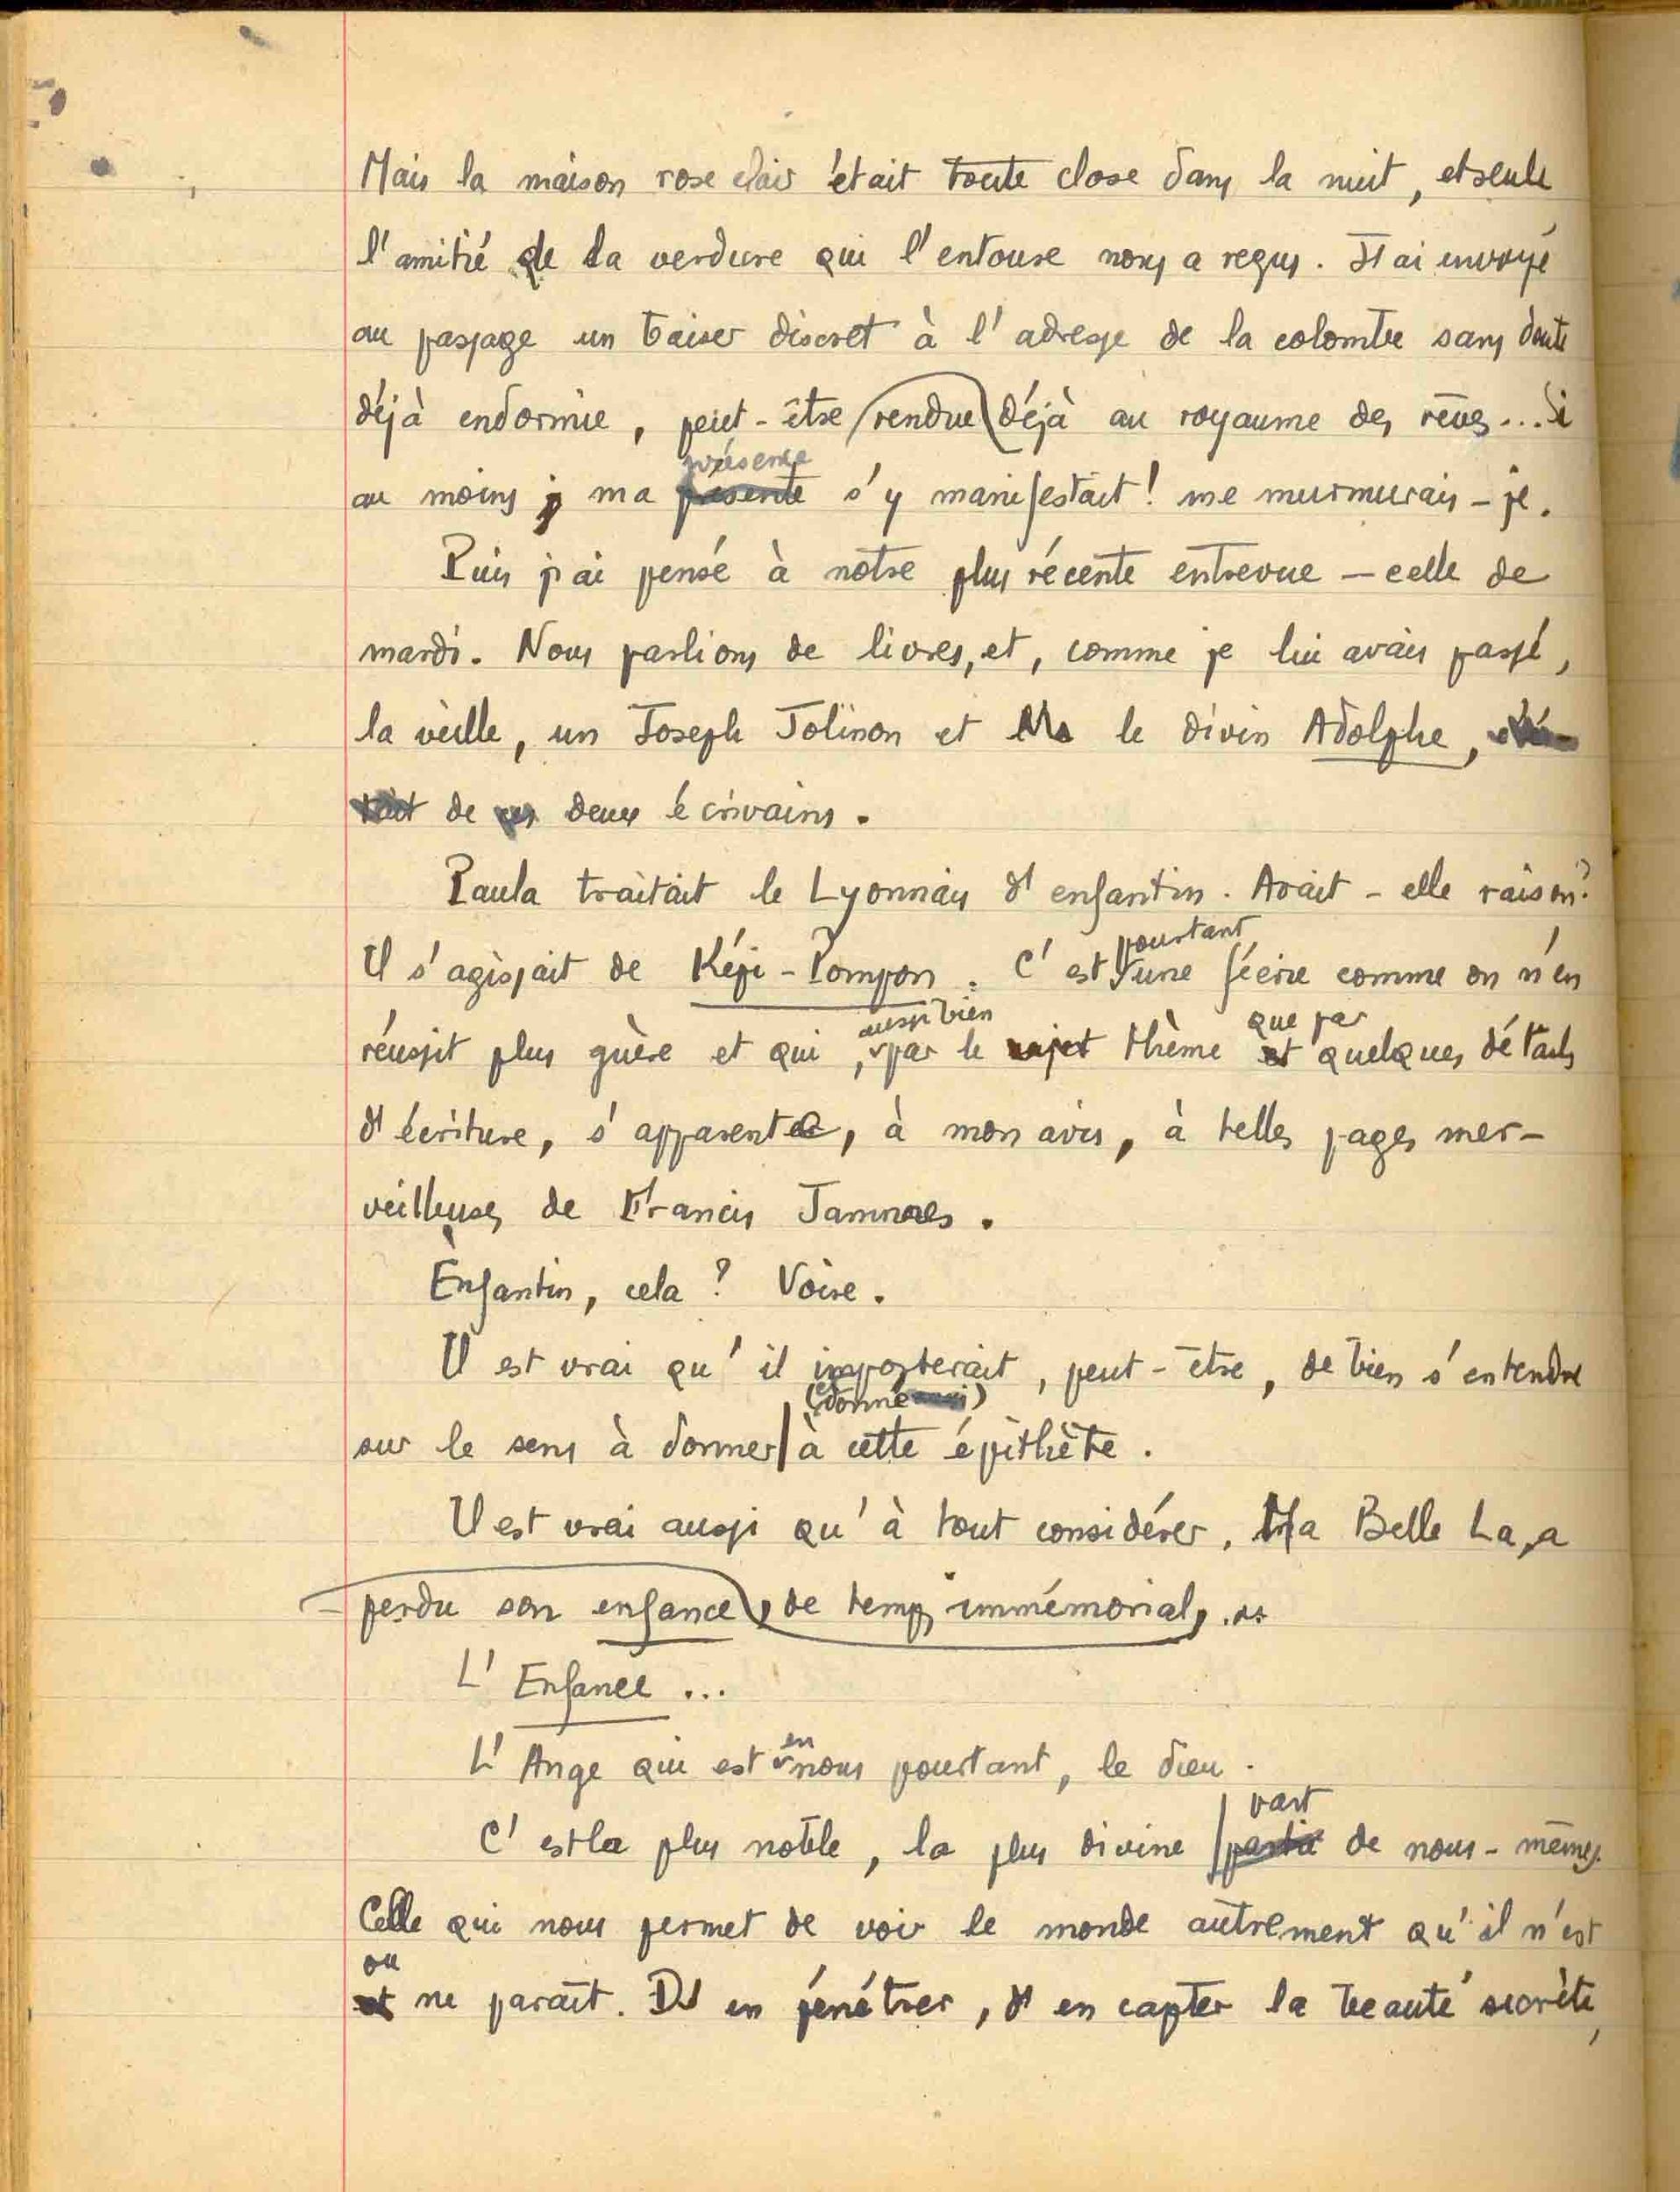 Mais la maison rose clair était toute close dans la nuit, et seule
l'amitié de la verdure qui l'entoure nous a reçus. J'ai envoyé
au passage un baiser discret à l'adresse de la colombe sans doute
déjà endormie, peut-être rendue déjà au royaume des rêves... Si
présence
au moins ma présente s'y manifestait! me murmurais-je.
Puis j'ai pensé à notre plus récente entrevue — celle de
mardi. Nous parlions de livres, et, comme je lui avais passé,
la veille, un Joseph Jolinon et le divin Adolphe,
de ces deux écrivains.
Paula traitait le Lyonnais d'enfantin. Avait-elle raison?
pourtant
Il s'agissait de Képi-Pompon. C'est une féerie comme on n'en
aussi bien que par
réussit plus guère et qui, par le sujet thème et quelques détails
d'écriture, s'apparente, à mon avis, à telles pages mer-
veilleuses de Francis Jammes.
Enfantin, cela? Voire.
Il est vrai qu'il importerait, peut-être, de bien s'entendre
(donné)
sur le sens à donner à cette épithète.
Il est vrai aussi qu'à tout considérer, Ma Belle La, a
perdu son enfance, de temps immémorial, ...
L'Enfance...
en
L'Ange qui est nous pourtant, le dieu.
part
C'est la plus noble, la plus divine partie de nous-mêmes.
Celle qui nous permet de voir le monde autrement qu'il n'est
ou
et ne paraît. D'en pénétrer, d'en capter la beauté secrète,